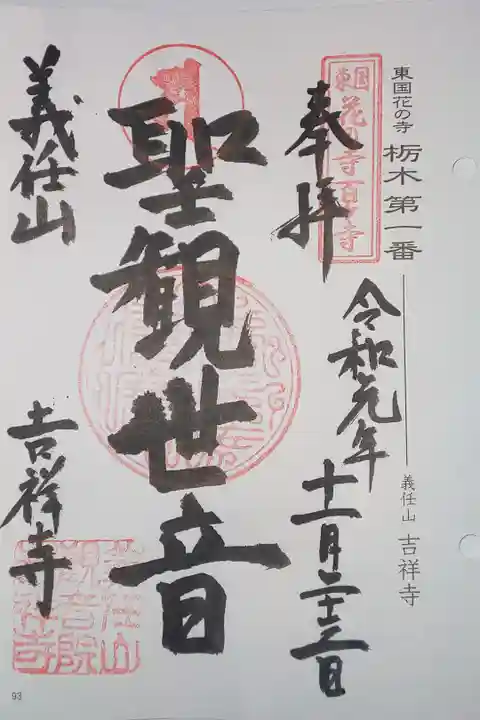 東国花の寺 栃木第一番 義任山 吉祥寺
東国花の寺百ヶ寺
奉拝
令和元年
十一月二十三日
聖観世音
義任山
吉祥寺
93